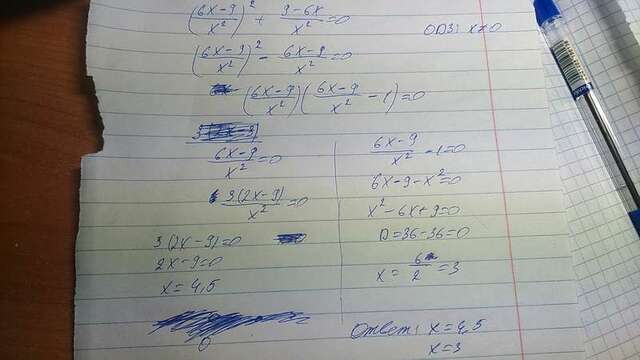 ((6x-9)/x²)² + (9-6x)/x² = 0 ОДЗ: x≠0
((6x-9)/x²)² - (6x-9)/x² = 0
((6x-9)/x²)((6x-9)/x² - 1) = 0
(6x-9)/x² = 0
3(2x-9)/x² = 0
3(2x-9)=0
2x-9=0
x=4,5
(6x-9)/x² - 1 = 0
6x-9-x²=0
x²-6x+9=0
D=36-36=0
x = 6/2 = 3
Ответ: x=4,5
x=3